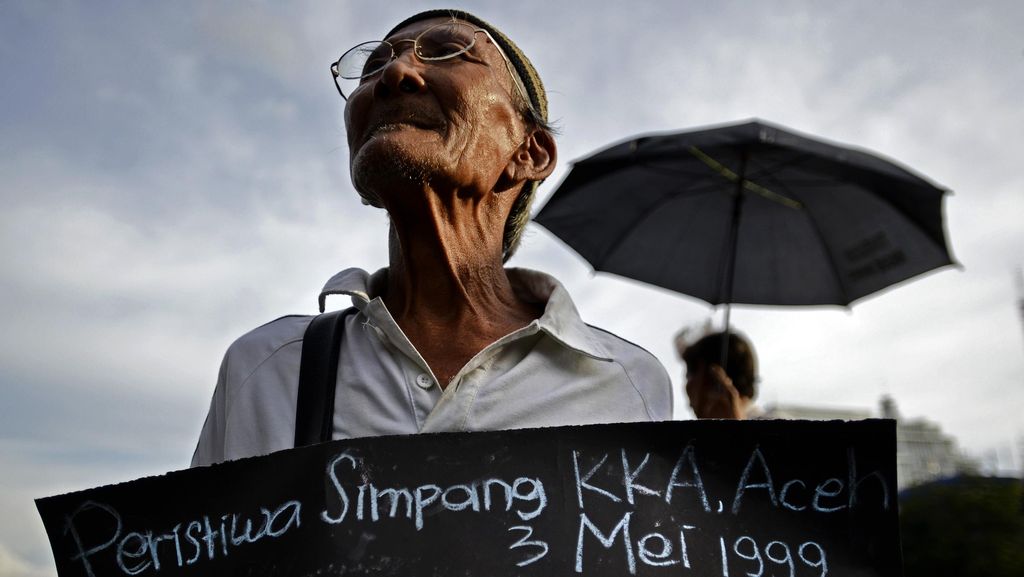 Peristiwa Simpang KKA, Aceh
3 Mei 1999